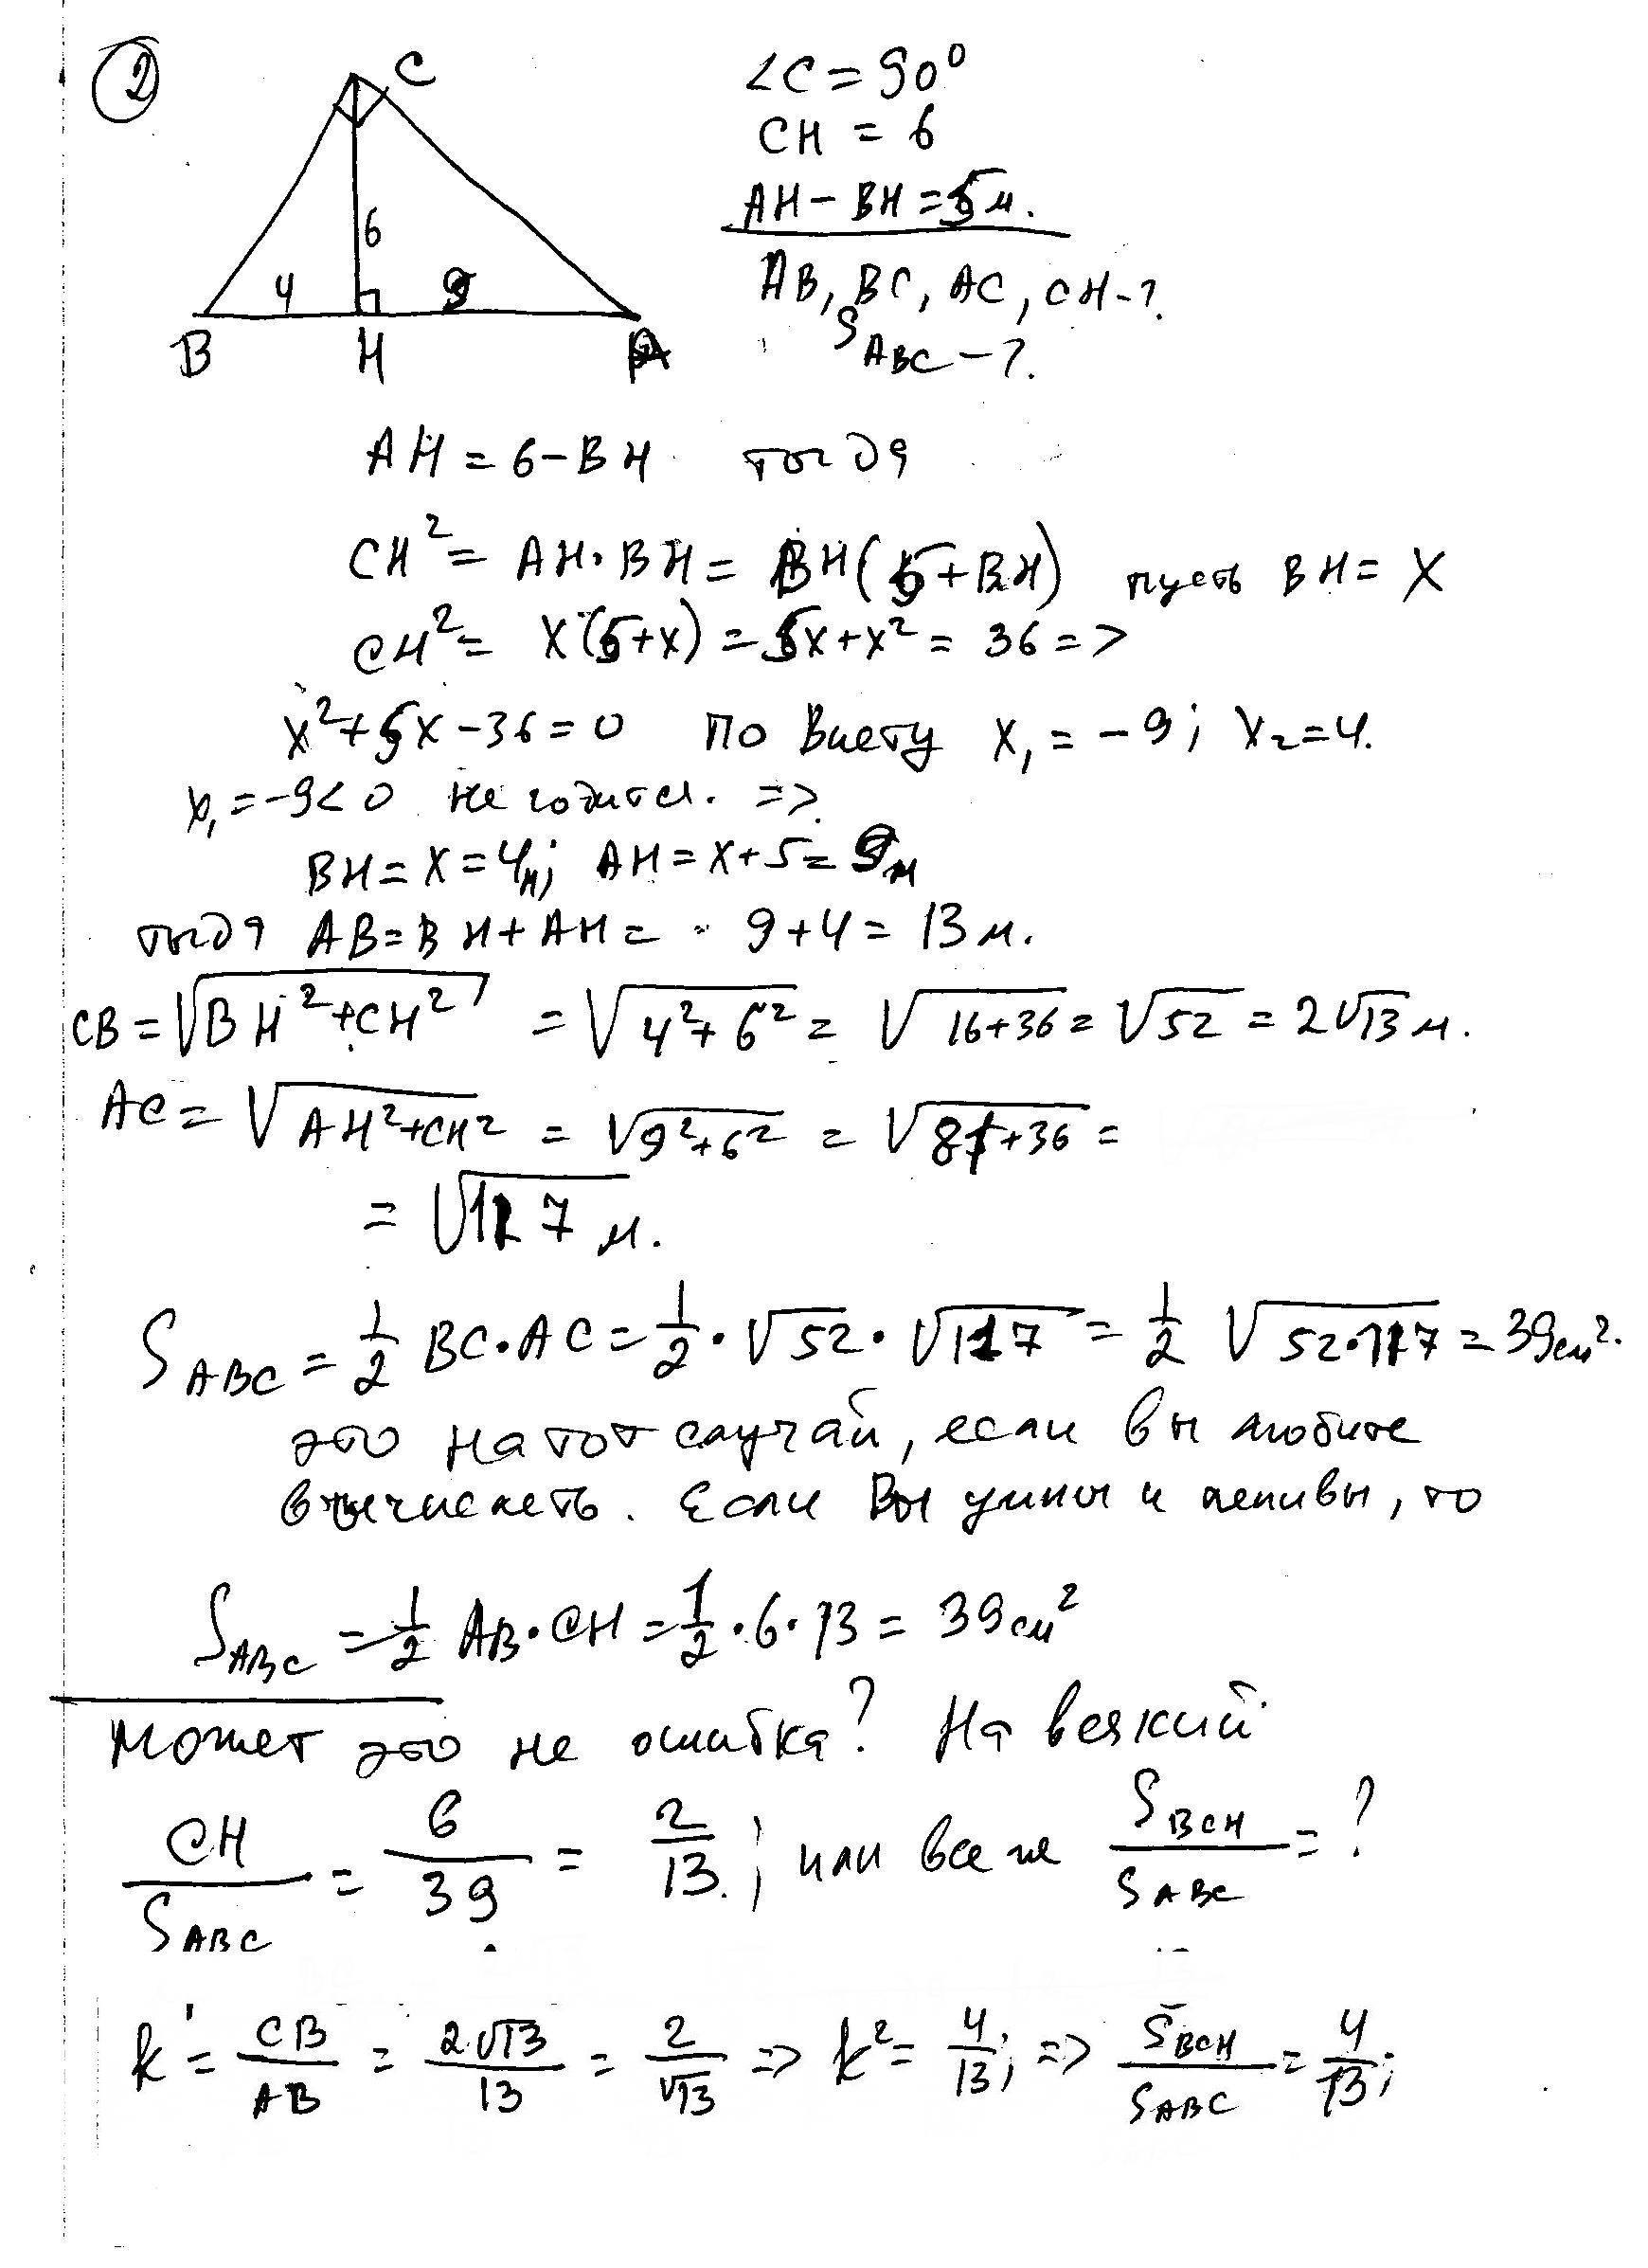 2
C
∠C = 90°
CH = 6
AH − BH = 5 м.
AB, BC, AC, CH − ?
S ABC − ?
6
4
9
B
H
A
AH = 6 − BH тогда
CH² = AH · BH = BH(5 + BH) пусть BH = X
CH² = X(5 + x) = 5x + x² = 36 =>
x² + 5x − 36 = 0 По Виету x₁ = −9; x₂ = 4.
x₁ = −9 < 0 не годится. =>
BH = X = 4 м; AH = X + 5 = 9 м
тогда AB = BH + AH = 9 + 4 = 13 м.
CB = √(BH² + CH²) = √(4² + 6²) = √(16 + 36) = √52 = 2√13 м.
AC = √(AH² + CH²) = √(9² + 6²) = √(81 + 36) =
= √117 м.
S ABC = 1/2 BC · AC = 1/2 · √52 · √117 = 1/2 √(52 · 117) = 39 см².
это на тот случай, если вы любите
вычислеть. Если Вы умны и ленивы, то
S ABC = 1/2 AB · CH = 1/2 · 6 · 13 = 39 см²
Может это не ошибка? На всякий
CH / S ABC = 6/39 = 2/13; или все же S BCH / S ABC = ?
k = CB/AB = 2√13/13 = 2/√13 => k² = 4/13; => S BCH / S ABC = 4/13;